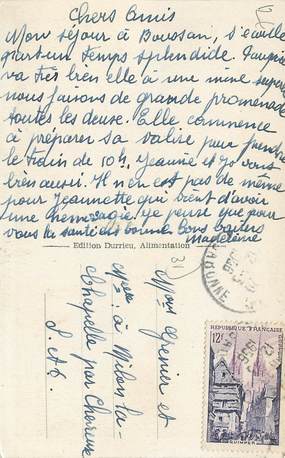 Chers Amis
Mon séjour à Boussan, s'écoule
par un temps splendide.
va très bien elle à une mine superbe
nous faisons de grande promenade
toutes les deux. Elle commence
à préparer sa valise pour prendre
le train de 10h, Jeannie et Jo vont
bien aussi. Il n'en est pas de même
pour Jeannette qui vient d'avoir
une hémorragie. Je pense que pour
vous la santé est bonne. Bons baisers
Madeleine
Edition Durrieu, Alimentation
31
Monsr Grenier et
Mme à
Chapelle par
GARONNE
REPUBLIQUE FRANÇAISE
12F
QUIMPER